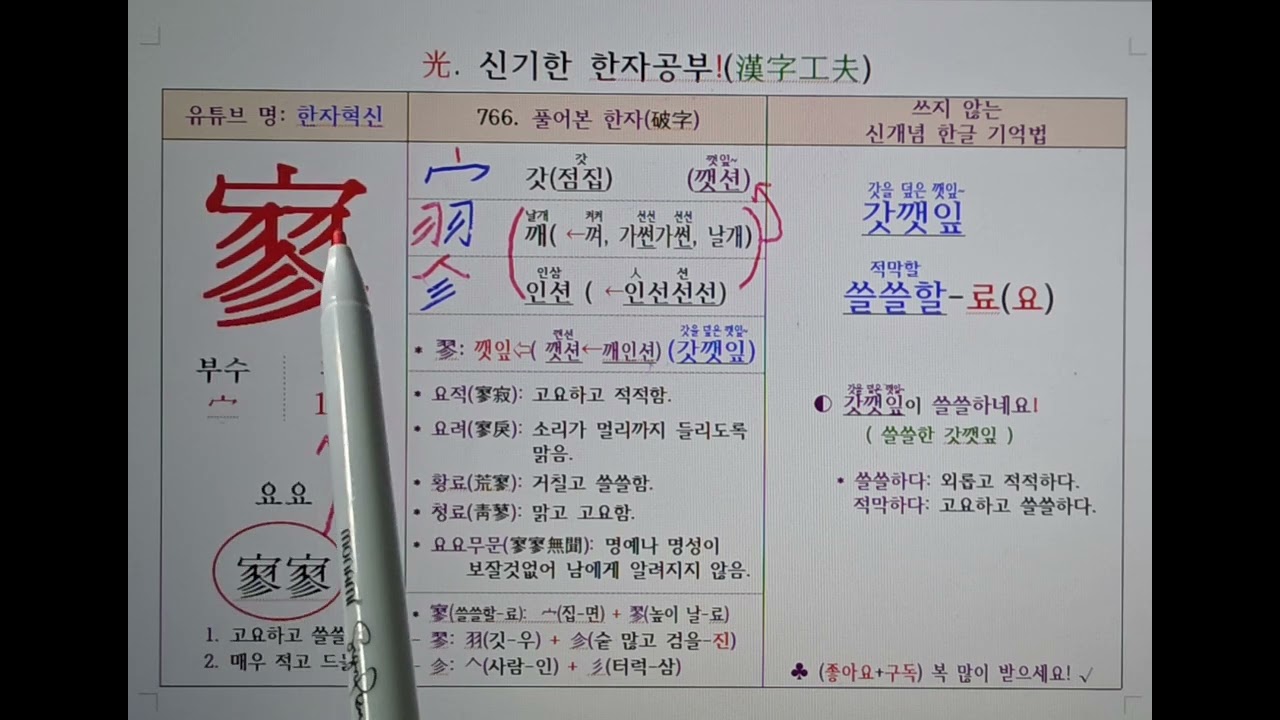 光. 신기한 한자공부!(漢字工夫)
유튜브 명: 한자혁신
766. 풀어본 한자(破字)
쓰지 않는
신개념 한글 기억법
寥
부수
宀
요요
寥寥
1. 고요하고 쓸쓸
2. 매우 적고 드
宀 갓(점집) (깻션)
갓 깻잎~
羽 깨( ←껴, 가썬가썬, 날개)
날개 켜켜 선선 선선
㐱 인션 ( ←인선선선)
인삼 人 션
* 翏: 깻잎⇦( 깻션←깨인션) (갓깻잎)
깻션 갓을 덮은 깻잎~
* 요적(寥寂): 고요하고 적적함.
* 요려(寥戾): 소리가 멀리까지 들리도록
맑음.
* 황료(荒寥): 거칠고 쓸쓸함.
* 청료(靑蓼): 맑고 고요함.
* 요요무문(寥寥無聞): 명예나 명성이
보잘것없어 남에게 알려지지 않음.
* 寥(쓸쓸할-료): 宀(집-면) + 翏(높이 날-료)
- 翏: 羽(깃-우) + 㐱(숱 많고 검을-진)
- 㐱: 人(사람-인) + 彡(터럭-삼)
갓을 덮은 깻잎~
갓깻잎
적막할
쓸쓸할-료(요)
갓을 덮은 깻잎~
◐ 갓깻잎이 쓸쓸하네요!
( 쓸쓸한 갓깻잎 )
* 쓸쓸하다: 외롭고 적적하다.
적막하다: 고요하고 쓸쓸하다.
♣ (좋아요+구독) 복 많이 받으세요! √
monami